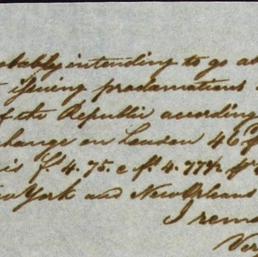 obably intending to go at
issuing proclamations
of the Republic according
change on London 46
is f. 4.75. c f. 4.77½ f
ew York and New Orleans
I rema
Ver